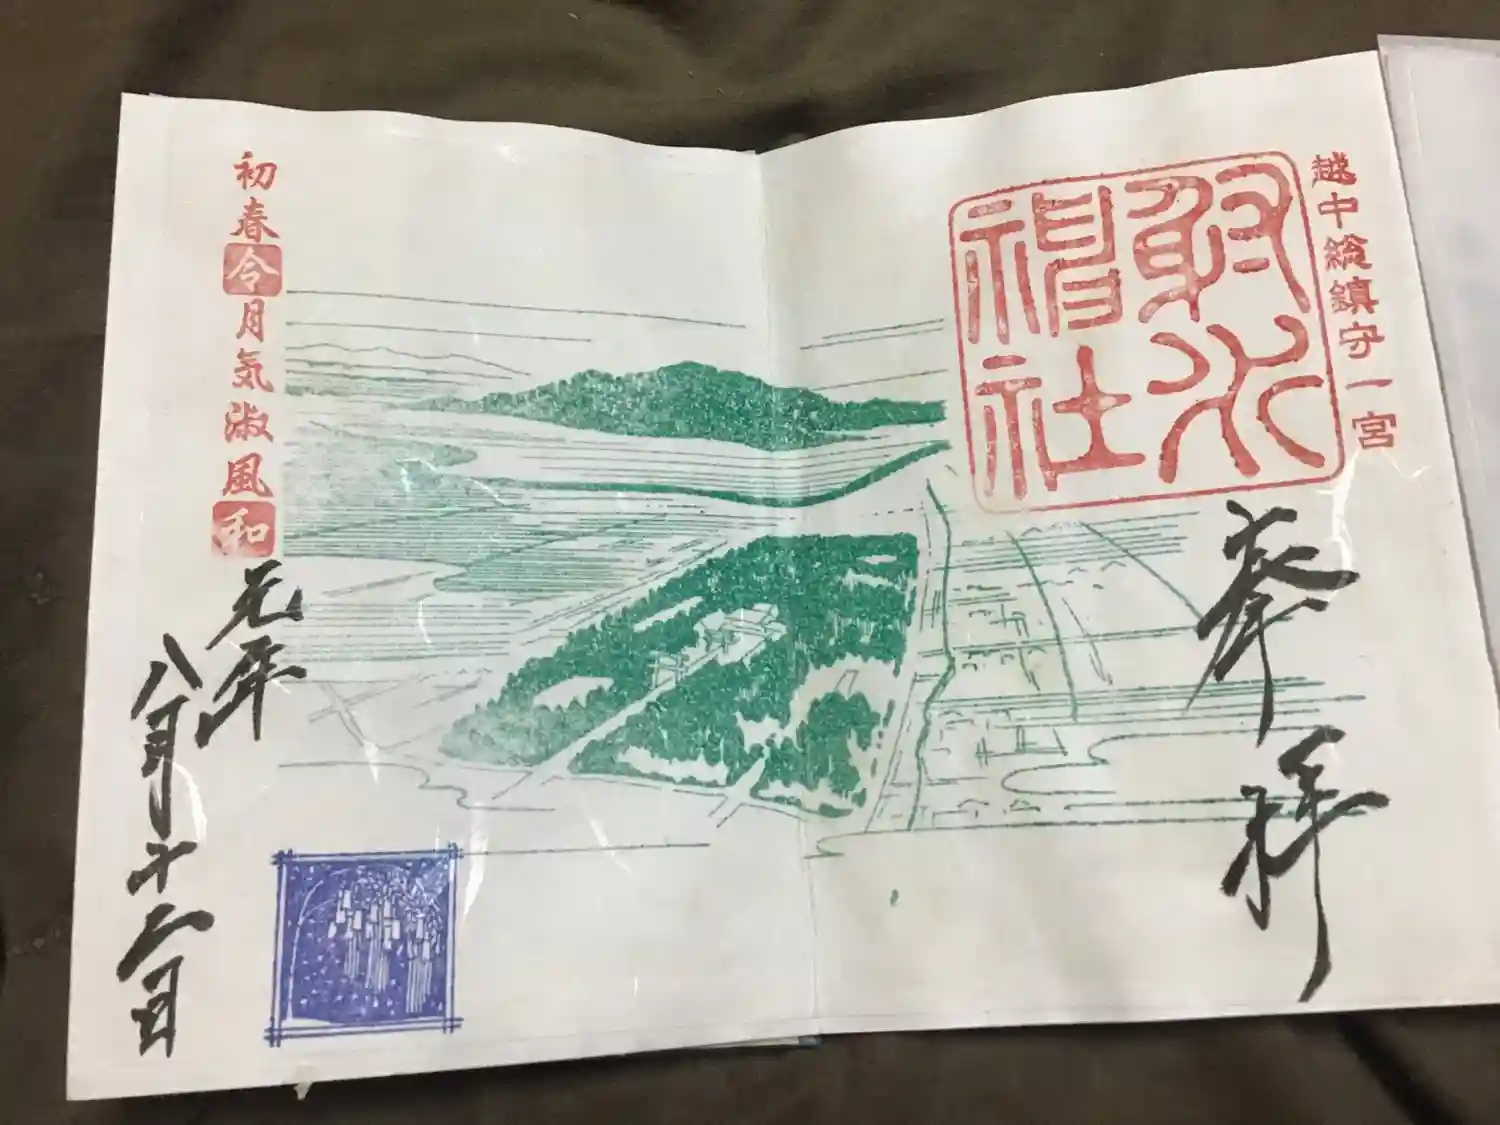 越中総鎮守一宮
射水
神社
奉拝
初春令月気淑風和
元年
八月十六日